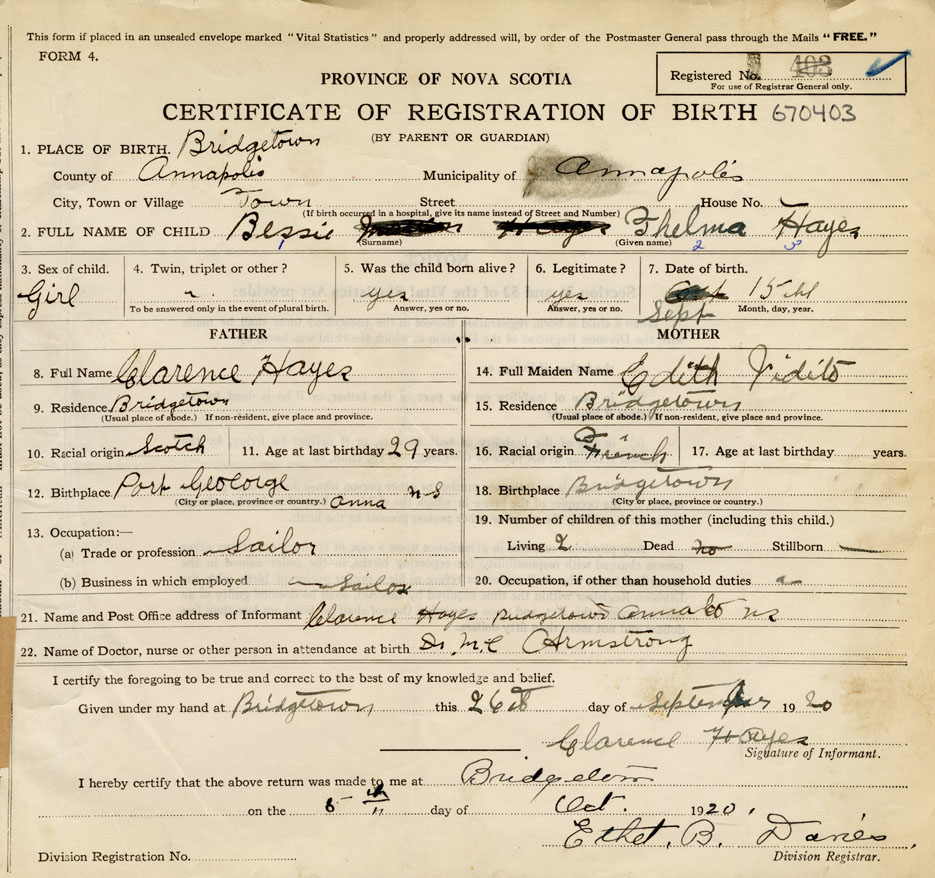 This form if placed in an unsealed envelope marked "Vital Statistics" and properly addressed will, by order of the Postmaster General pass through the Mails "FREE."
FORM 4.
Registered No. 403
For use of Registrar General only.
PROVINCE OF NOVA SCOTIA
CERTIFICATE OF REGISTRATION OF BIRTH 670403
(BY PARENT OR GUARDIAN)
1. PLACE OF BIRTH. Bridgetown
County of Annapolis Municipality of Annapolis
City, Town or Village Town Street House No.
(If birth occurred in a hospital, give its name instead of Street and Number)
2. FULL NAME OF CHILD Bessie Thelma Hayes
(Surname) (Given name)
1 2 3
3. Sex of child. 4. Twin, triplet or other? 5. Was the child born alive? 6. Legitimate? 7. Date of birth.
Girl yes yes Oct 15th
To be answered only in the event of plural birth. Answer, yes or no. Answer, yes or no. Sept Month, day, year.
FATHER MOTHER
8. Full Name Clarence Hayes 14. Full Maiden Name Edith Vidito
9. Residence Bridgetown 15. Residence Bridgetown
(Usual place of abode.) If non-resident, give place and province. (Usual place of abode.) If non-resident, give place and province.
10. Racial origin Scotch 11. Age at last birthday 29 years. 16. Racial origin French 17. Age at last birthday years.
12. Birthplace Port Geoorge 18. Birthplace Bridgetown
(City or place, province or country.) Anna NS (City or place, province or country.)
13. Occupation:— 19. Number of children of this mother (including this child.)
(a) Trade or profession Sailor Living 2 Dead no Stillborn
(b) Business in which employed Sailor 20. Occupation, if other than household duties
21. Name and Post Office address of Informant Clarence Hayes Bridgetown Anna Co NS
22. Name of Doctor, nurse or other person in attendance at birth Dr. M.E Armstrong
I certify the foregoing to be true and correct to the best of my knowledge and belief.
Given under my hand at Bridgetown this 26th day of September 1920
Clarence Hayes
Signature of Informant.
I hereby certify that the above return was made to me at Bridgetown
on the 5th day of Oct. 1920.
Ethel. B. Davies,
Division Registration No. Division Registrar.